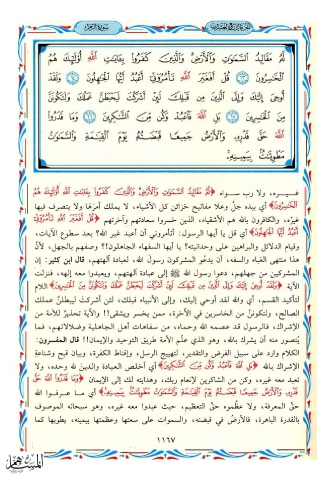 سورة الزمر
لَّهُ مَقَالِيدُ السَّمَاوَاتِ وَالْأَرْضِ وَالَّذِينَ كَفَرُوا بِآيَاتِ اللَّهِ أُولَٰئِكَ هُمُ
الْخَاسِرُونَ ۝ قُلْ أَفَغَيْرَ اللَّهِ تَأْمُرُونِّي أَعْبُدُ أَيُّهَا الْجَاهِلُونَ ۝ وَلَقَدْ
أُوحِيَ إِلَيْكَ وَإِلَى الَّذِينَ مِن قَبْلِكَ لَئِنْ أَشْرَكْتَ لَيَحْبَطَنَّ عَمَلُكَ وَلَتَكُونَنَّ
مِنَ الْخَاسِرِينَ ۝ بَلِ اللَّهَ فَاعْبُدْ وَكُن مِّنَ الشَّاكِرِينَ ۝ وَمَا قَدَرُوا
اللَّهَ حَقَّ قَدْرِهِ وَالْأَرْضُ جَمِيعًا قَبْضَتُهُ يَوْمَ الْقِيَامَةِ وَالسَّمَاوَاتُ
مَطْوِيَّاتٌ بِيَمِينِهِ
غيره، ولا رب سواه ﴿لَّهُ مَقَالِيدُ السَّمَاوَاتِ وَالْأَرْضِ وَالَّذِينَ كَفَرُوا بِآيَاتِ اللَّهِ أُولَٰئِكَ هُمُ
الْخَاسِرُونَ﴾ أي بيده جلَّ وعلا مفاتيح خزائن كل الأشياء، لا يملك أمرها ولا يتصرف فيها
غيره، والكافرون بالله هم الأشقياء، الذين خسروا سعادتهم وآخرتهم ﴿قُلْ أَفَغَيْرَ اللَّهِ تَأْمُرُونِّي
أَعْبُدُ أَيُّهَا الْجَاهِلُونَ﴾ أي قل يا أيها الرسول: أتأمروني أن أعبد غير الله؟ بعد سطوع الآيات،
وقيام الدلائل والبراهين على وحدانيته؟ يا أيها السفهاء الجاهلون!؟ وصفهم بالجهل، لأنَّ
هذا منتهى الغباء والسفه، أن يدعُو المشركون رسولَ الله، لعبادة آلهتهم، قال ابن كثير: إن
المشركين من جهلهم، دعوا رسول الله ﷺ إلى عبادة آلهتهم، ويعبدوا معه إلهه، فنزلت
الآية ﴿وَلَقَدْ أُوحِيَ إِلَيْكَ وَإِلَى الَّذِينَ مِن قَبْلِكَ لَئِنْ أَشْرَكْتَ لَيَحْبَطَنَّ عَمَلُكَ وَلَتَكُونَنَّ مِنَ الْخَاسِرِينَ﴾ اللام
لتأكيد القسم، أي والله لقد أوحي إليك، وإلى الأنبياء قبلك، لئن أشركتَ ليبطلنَّ عملك
الصالح، ولتكوننَّ من الخاسرين في الآخرة، ممن يخسر ويشقى!! والآية تحذيرٌ للأمة من
الإشراك، فالرسول قد عصمه الله وحماه، من سفاهات أهل الجاهلية وضلالاتهم، فما
يُتصور منه أن يشرك بالله، وهو الذي علَّم الأمة طريق التوحيد والإيمان!! قال المفسرون:
الكلام وارد على سبيل الفرض والتقدير، لتهييج الرسل، وإقناط الكفرة، وبيان قبح وشناعة
الإشراك بالله ﴿بَلِ اللَّهَ فَاعْبُدْ وَكُن مِّنَ الشَّاكِرِينَ﴾ أي أخلص العبادة والدين لله وحده، ولا
تعبد معه غيره، وكن من الشاكرين لإنعام ربك، وهدايته لك إلى الإيمان ﴿وَمَا قَدَرُوا اللَّهَ حَقَّ
قَدْرِهِ وَالْأَرْضُ جَمِيعًا قَبْضَتُهُ يَوْمَ الْقِيَامَةِ وَالسَّمَاوَاتُ مَطْوِيَّاتٌ بِيَمِينِهِ﴾ أي ما عرفوا الله
حقَّ المعرفة، ولا عظَّموه حقَّ التعظيم، حيث عبدوا معه غيره، وهو سبحانه الموصوف
بالقدرة الباهرة، فالأرضُ في قبضته، والسموات على سعتها وعظمتها بيمينه، يطويها كما
١١٦٧